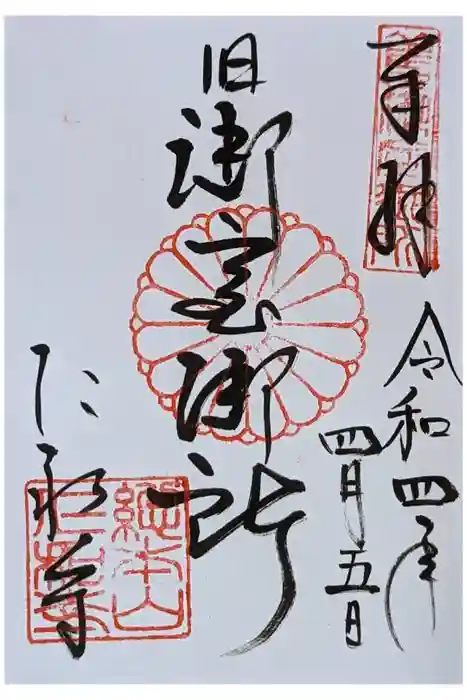 奉拝
令和四年
四月五日
旧御室御所
仁和寺
総本山
仁和寺